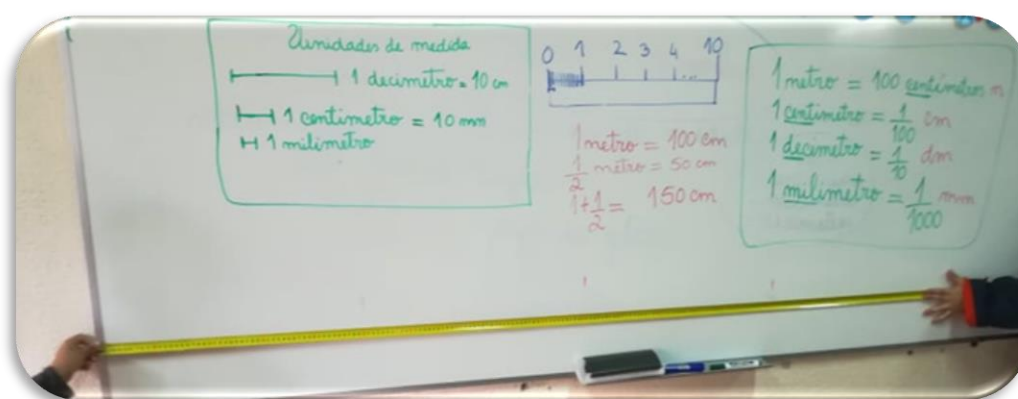 Unidades de medida
1 decimetro = 10 cm
1 centimetro = 10 mm
1 milimetro
0 1 2 3 4 ... 10
1 metro = 100 cm
1/2 metro = 50 cm
1+1/2 = 150 cm
1 metro = 100 centimetros m
1 centimetro = 1/100 cm
1 decimetro = 1/10 dm
1 milimetro = 1/1000 mm